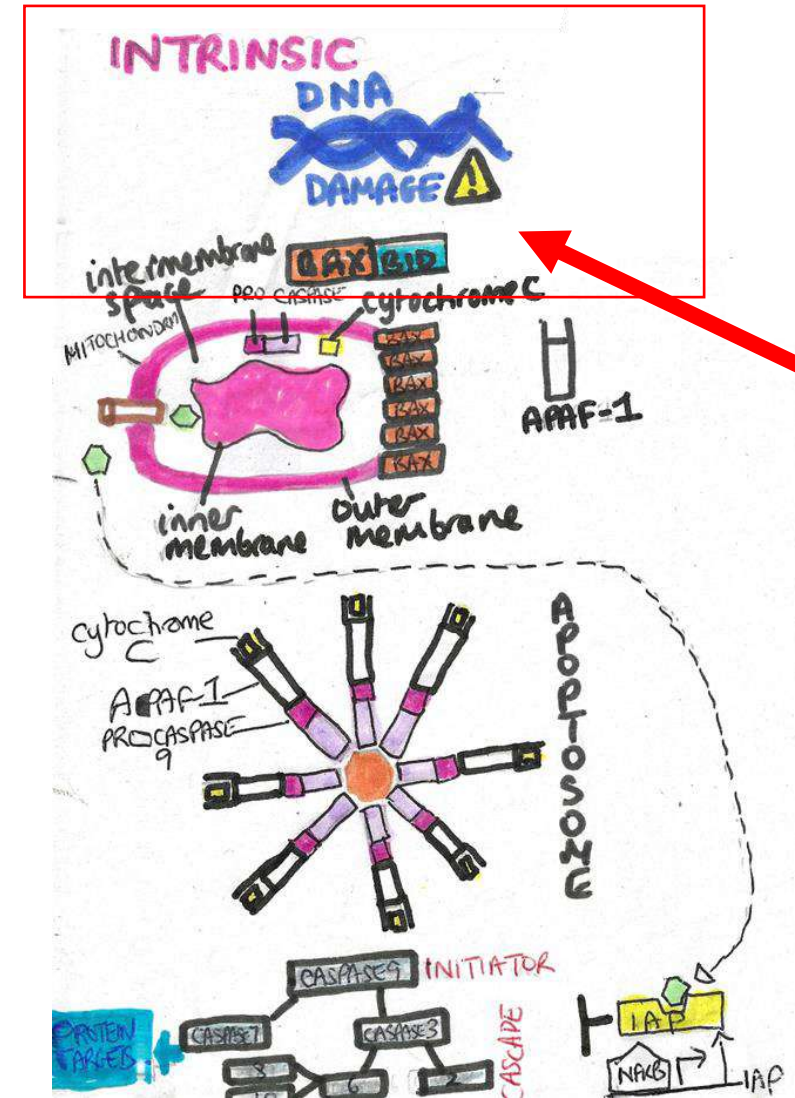 INTRINSIC
DNA
DAMAGE
!
BAX BID
intermembrane
space
PRO CASPASE
cytochrome C
MITOCHONDRIA
BAX
BAX
BAX
BAX
BAX
BAX
APAF-1
inner
membrane
outer
membrane
cytochrome
C
APAF-1
PROCASPASE
9
APOPTOSOME
CASPASE9 INITIATOR
CASPASE7
CASPASE3
CASCADE
PROTEIN
TARGETS
8
10
6
2
IAP
NFKB
IAP